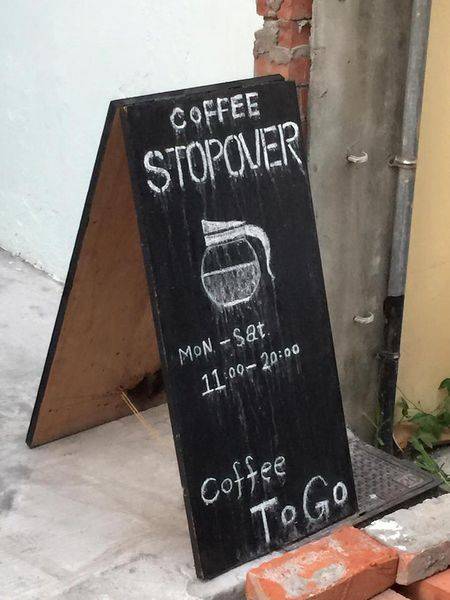 COFFEE
STOPOVER
MON - Sat.
11:00 - 20:00
Coffee
To Go